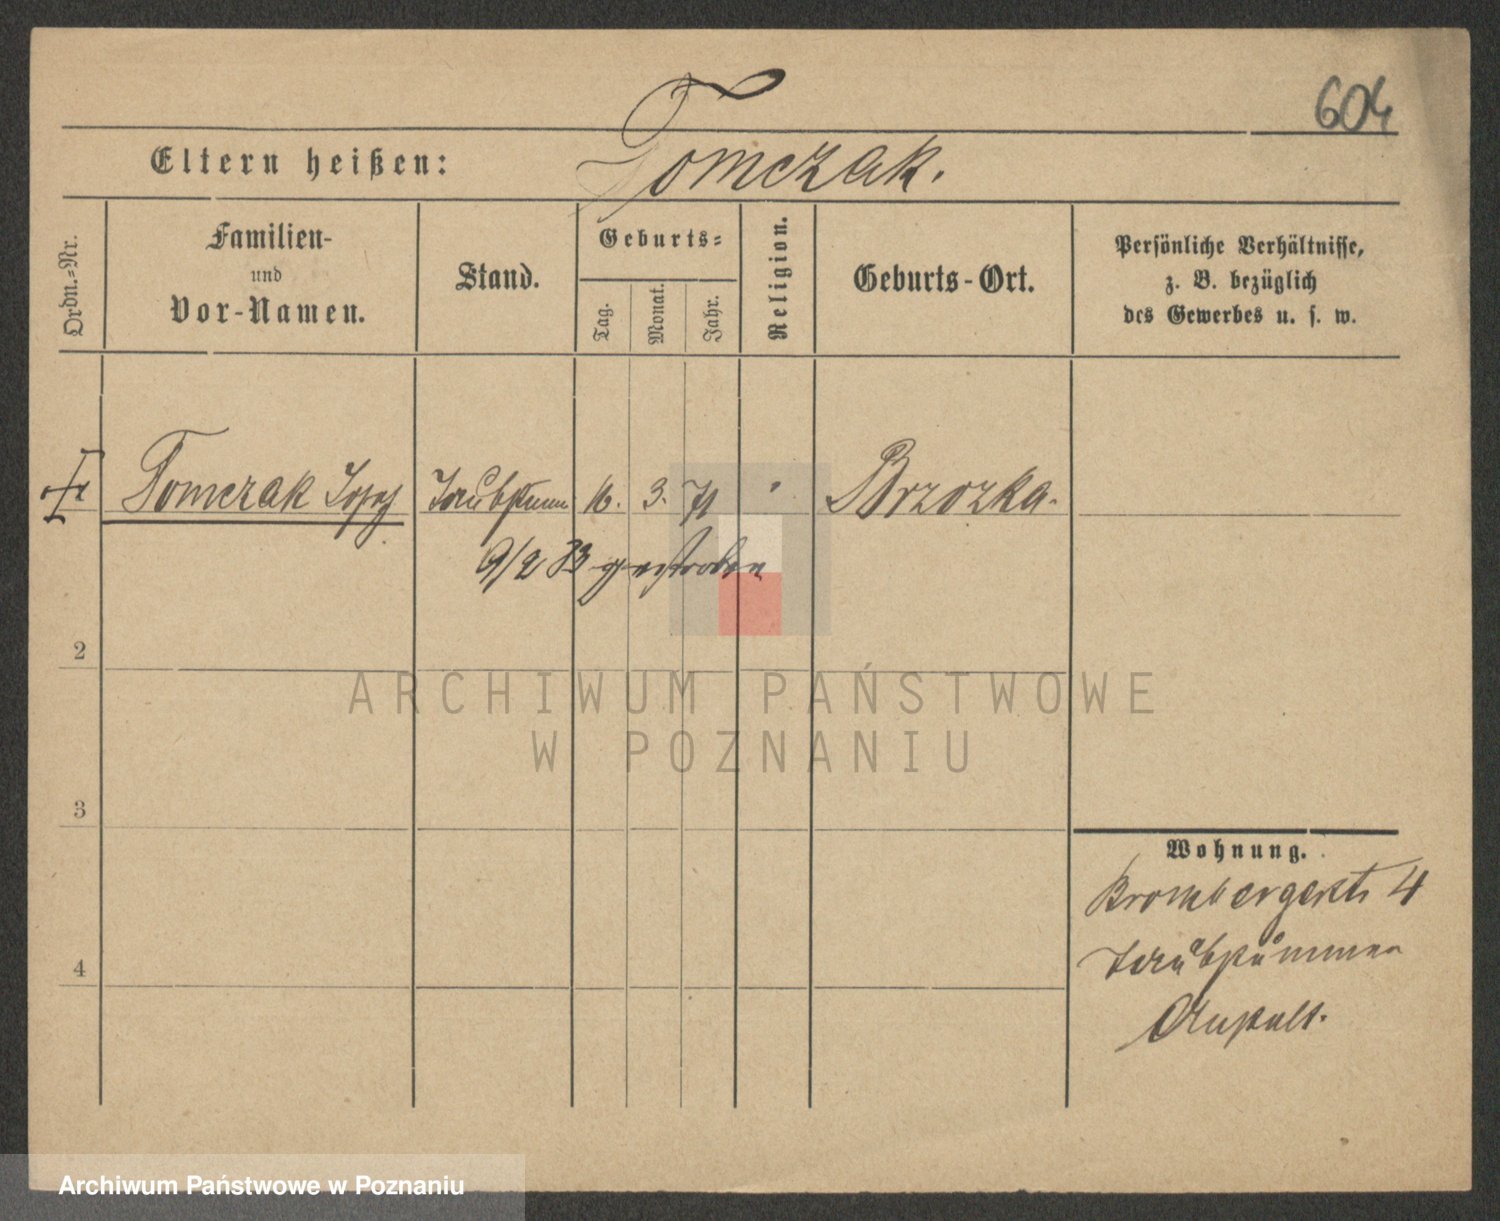 604
Eltern heißen: Tomczak.
Ordn.=Nr.
Familien-
und
Vor-Namen.
Stand.
Geburts=
Tag.
Monat.
Jahr.
Religion.
Geburts-Ort.
Persönliche Verhältnisse,
z. B. bezüglich
des Gewerbes u. s. w.
Tomczak Josef Taubstumm 16. 3. 71 Brzozka.
9/2 83 gestorben
2
3
4
Wohnung.
Brombergerstr 4
Taubstummen
Anstalt.
ARCHIWUM PAŃSTWOWE
W POZNANIU
Archiwum Państwowe w Poznaniu